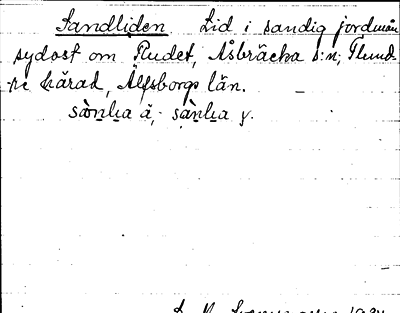 Sandliden Lid i sandig jordmån
sydost om Rudet, Åsbräcka s:n, Flund-
re härad, Älfsborgs län.
sànlıa ä, sànlıa y.